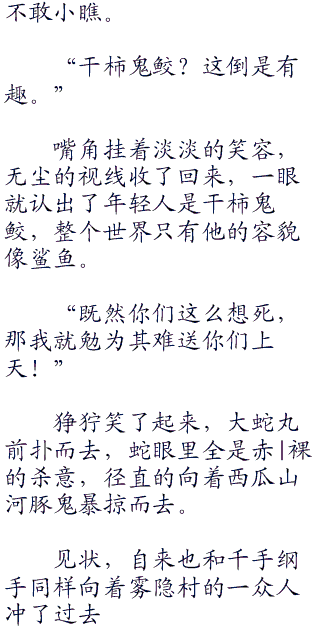 不敢小瞧。
“干柿鬼鲛？这倒是有
趣。”
嘴角挂着淡淡的笑容，
无尘的视线收了回来，一眼
就认出了年轻人是干柿鬼
鲛，整个世界只有他的容貌
像鲨鱼。
“既然你们这么想死，
那我就勉为其难送你们上
天！”
狰狞笑了起来，大蛇丸
前扑而去，蛇眼里全是赤|裸
的杀意，径直的向着西瓜山
河豚鬼暴掠而去。
见状，自来也和千手纲
手同样向着雾隐村的一众人
冲了过去